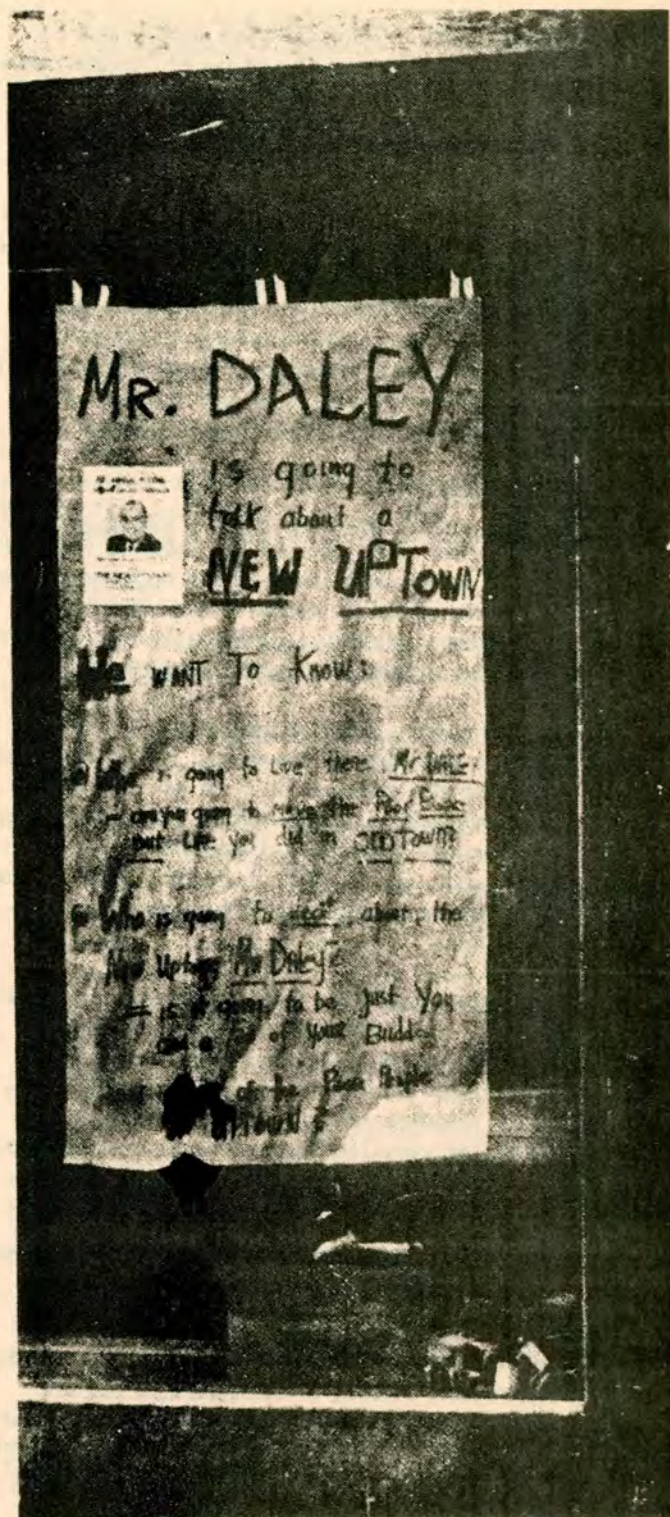 MR. DALEY
is going to
talk about a
NEW UPTOWN
We WANT To Know:
Who is going to Live there Mr DALEY
- are you going to move the Poor People
out Like you did in OLD TOWN?
Who is going to about the
New Uptown Mr Daley?
- is it going to be just You
and a of Your
of the Poor People
UPTOWN?